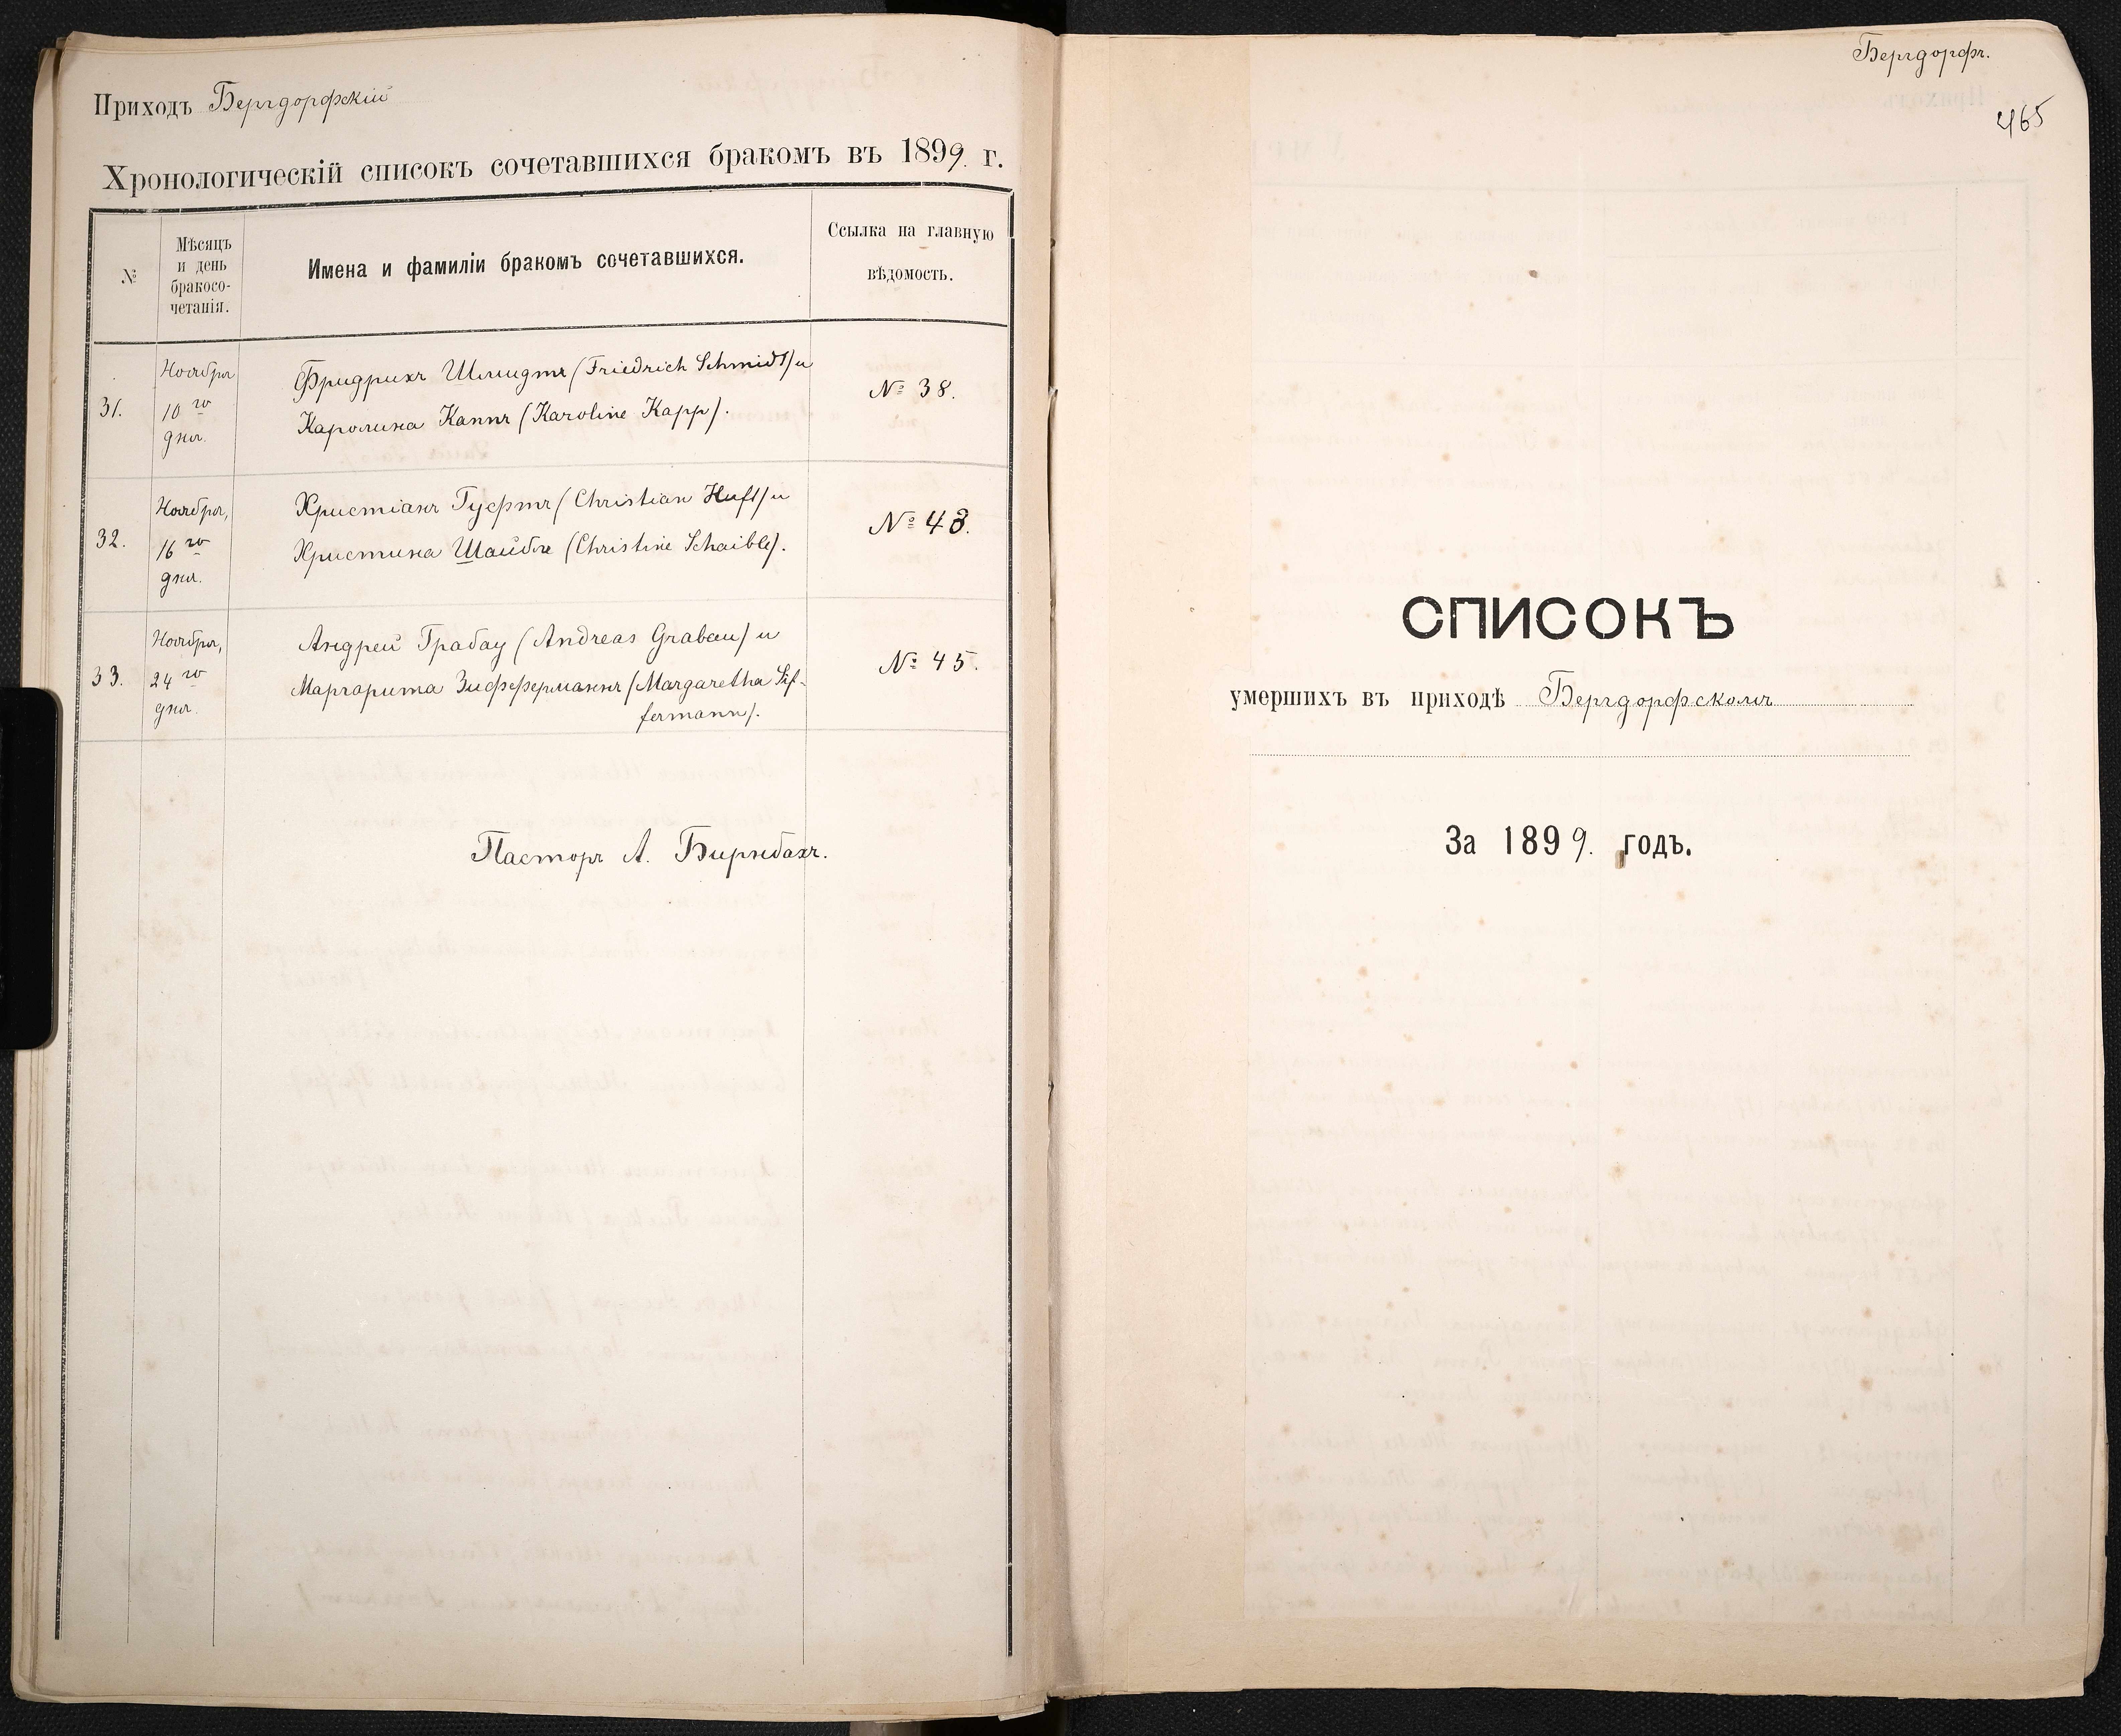 Приходъ Бергдорфскій
Хронологическій списокъ сочетавшихся бракомъ въ 1899 г.
№
Мѣсяцъ
и день
бракосо-
четанія.
Имена и фамиліи бракомъ сочетавшихся.
Ссылка на главную
вѣдомость.
31.
Ноября
10 го
дня.
Фридрихъ Шмидтъ (Friedrich Schmidt) и
Каролина Каппъ (Karoline Kapp).
№ 38.
32.
Ноября,
16 го
дня.
Христіанъ Гуфтъ (Christian Huft) и
Христина Шайбле (Christine Schaible).
№ 43.
33.
Ноября,
24 го
дня.
Андрей Грабау (Andreas Grabau) и
Маргарита Зифферманнъ (Margaretha Sif-
fermann).
№ 45.
Пасторъ А. Бирнбахъ.
Бергдорфъ.
465
СПИСОКЪ
умершихъ въ приходѣ Бергдорфскомъ
За 1899. годъ.